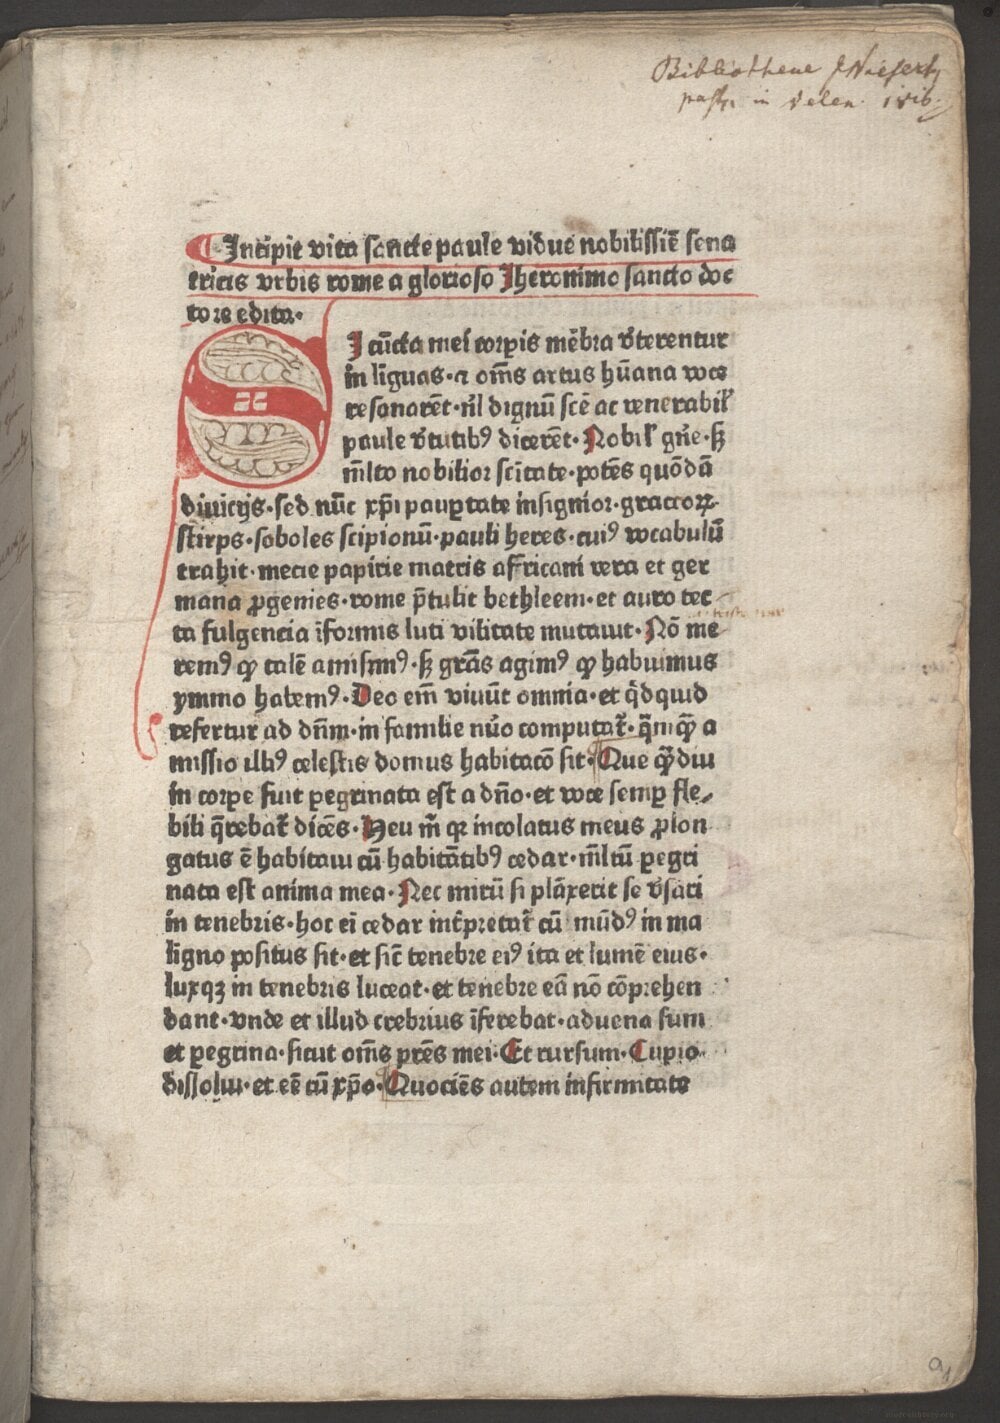 Bibliothecae J Niesert
past. in Velen. 1816.
Incipit vita sancte paule vidue nobilissiē sena
tricis vrbis rome a glorioso Jheronimo sancto doc
tore edita·
SI cūcta mei corꝑis mēbra v̄terentur
in liguas·⁊ om̄s artus hūana voce
resonarēt·nil dignū scē ac venerabil̛
paule v̄tutibꝰ dicerēt·Nobil̛ gn̄e·sꝫ
m̄lto nobilior scītate·potēs quōdā
diuicijs·sed nūc xp̄i pauꝑtate insignior·graccoꝝ
stirps·soboles scipionū·pauli heres·cuiꝰ vocabulū
trahit·mecie papirie matris affricani vera et ger
mana ꝓgenies·rome p̄tulit bethleem·et auro tec
ta fulgencia īformis luti vilitate mutauit·Nō me
remꝰ ꝙ talē amisimꝰ·sꝫ grās agimꝰ ꝙ habuimus
ymmo habemꝰ·Deo em̄ viuūt omnia·et q̇dquid
refertur ad dn̄m·in familie nūo computat̄·q̄mꝙ̄ a
missio illiꝰ celestis domus habitacō sit·Que ꝙ̄diu
in corꝑe fuit ꝑegrinata est a dn̄o·et voce semꝑ fle
bili q̄rebat̄ dicēs·Heu m̄ qꝛ incolatus meus ꝓlon
gatus ē habitaui cū habitātibꝰ cedar·m̄ltū ꝑegri
nata est anima mea·Nec mirū si plāxerit se v̄sari
in tenebris·hoc ei cedar int̄pretat̄ cū mūdꝰ in ma
ligno positus sit·et sic̄ tenebre eiꝰ ita et lumē eius·
luxqꝫ in tenebris luceat·et tenebre eā nō cōprehen
dant·vnde et illud crebrius īferebat·aduena sum
et ꝑegrina·sicut om̄s pr̄es mei·Et rursum·Cupio
dissolui·et eē cū xp̄o·Quociēs autem infirmitate
a1